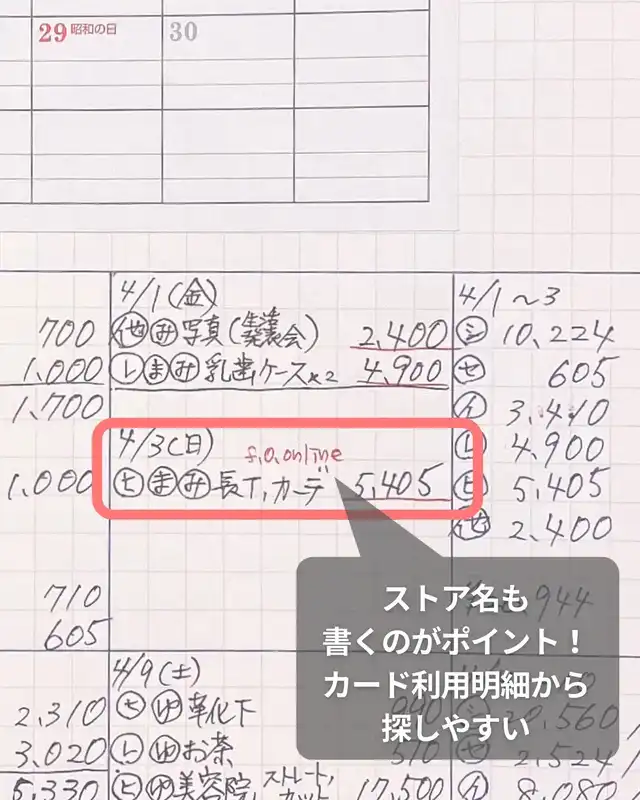 29 昭和の日
30
700
1,000
1,700
1,000
710
605
2,310
3,020
5,330
4/1(金)
他 み 写真(生活発表会) 2,400
し ま み 乳歯ケース×2 4,900
4/3(日)
f.o.online
ヒ ま み 長T,カーデ 5,405
4/9(土)
セ ゆ 靴下 990
し ゆ お茶 510
ヒ ゆ 美容院, ストレート, カット 17,500
4/1~3
シ 10,224
セ 605
イ 3,410
し 4,900
ヒ 5,405
他 2,400
944
ストア名も
書くのがポイント!
カード利用明細から
探しやすい
560
セ 2,524
イ 8,080